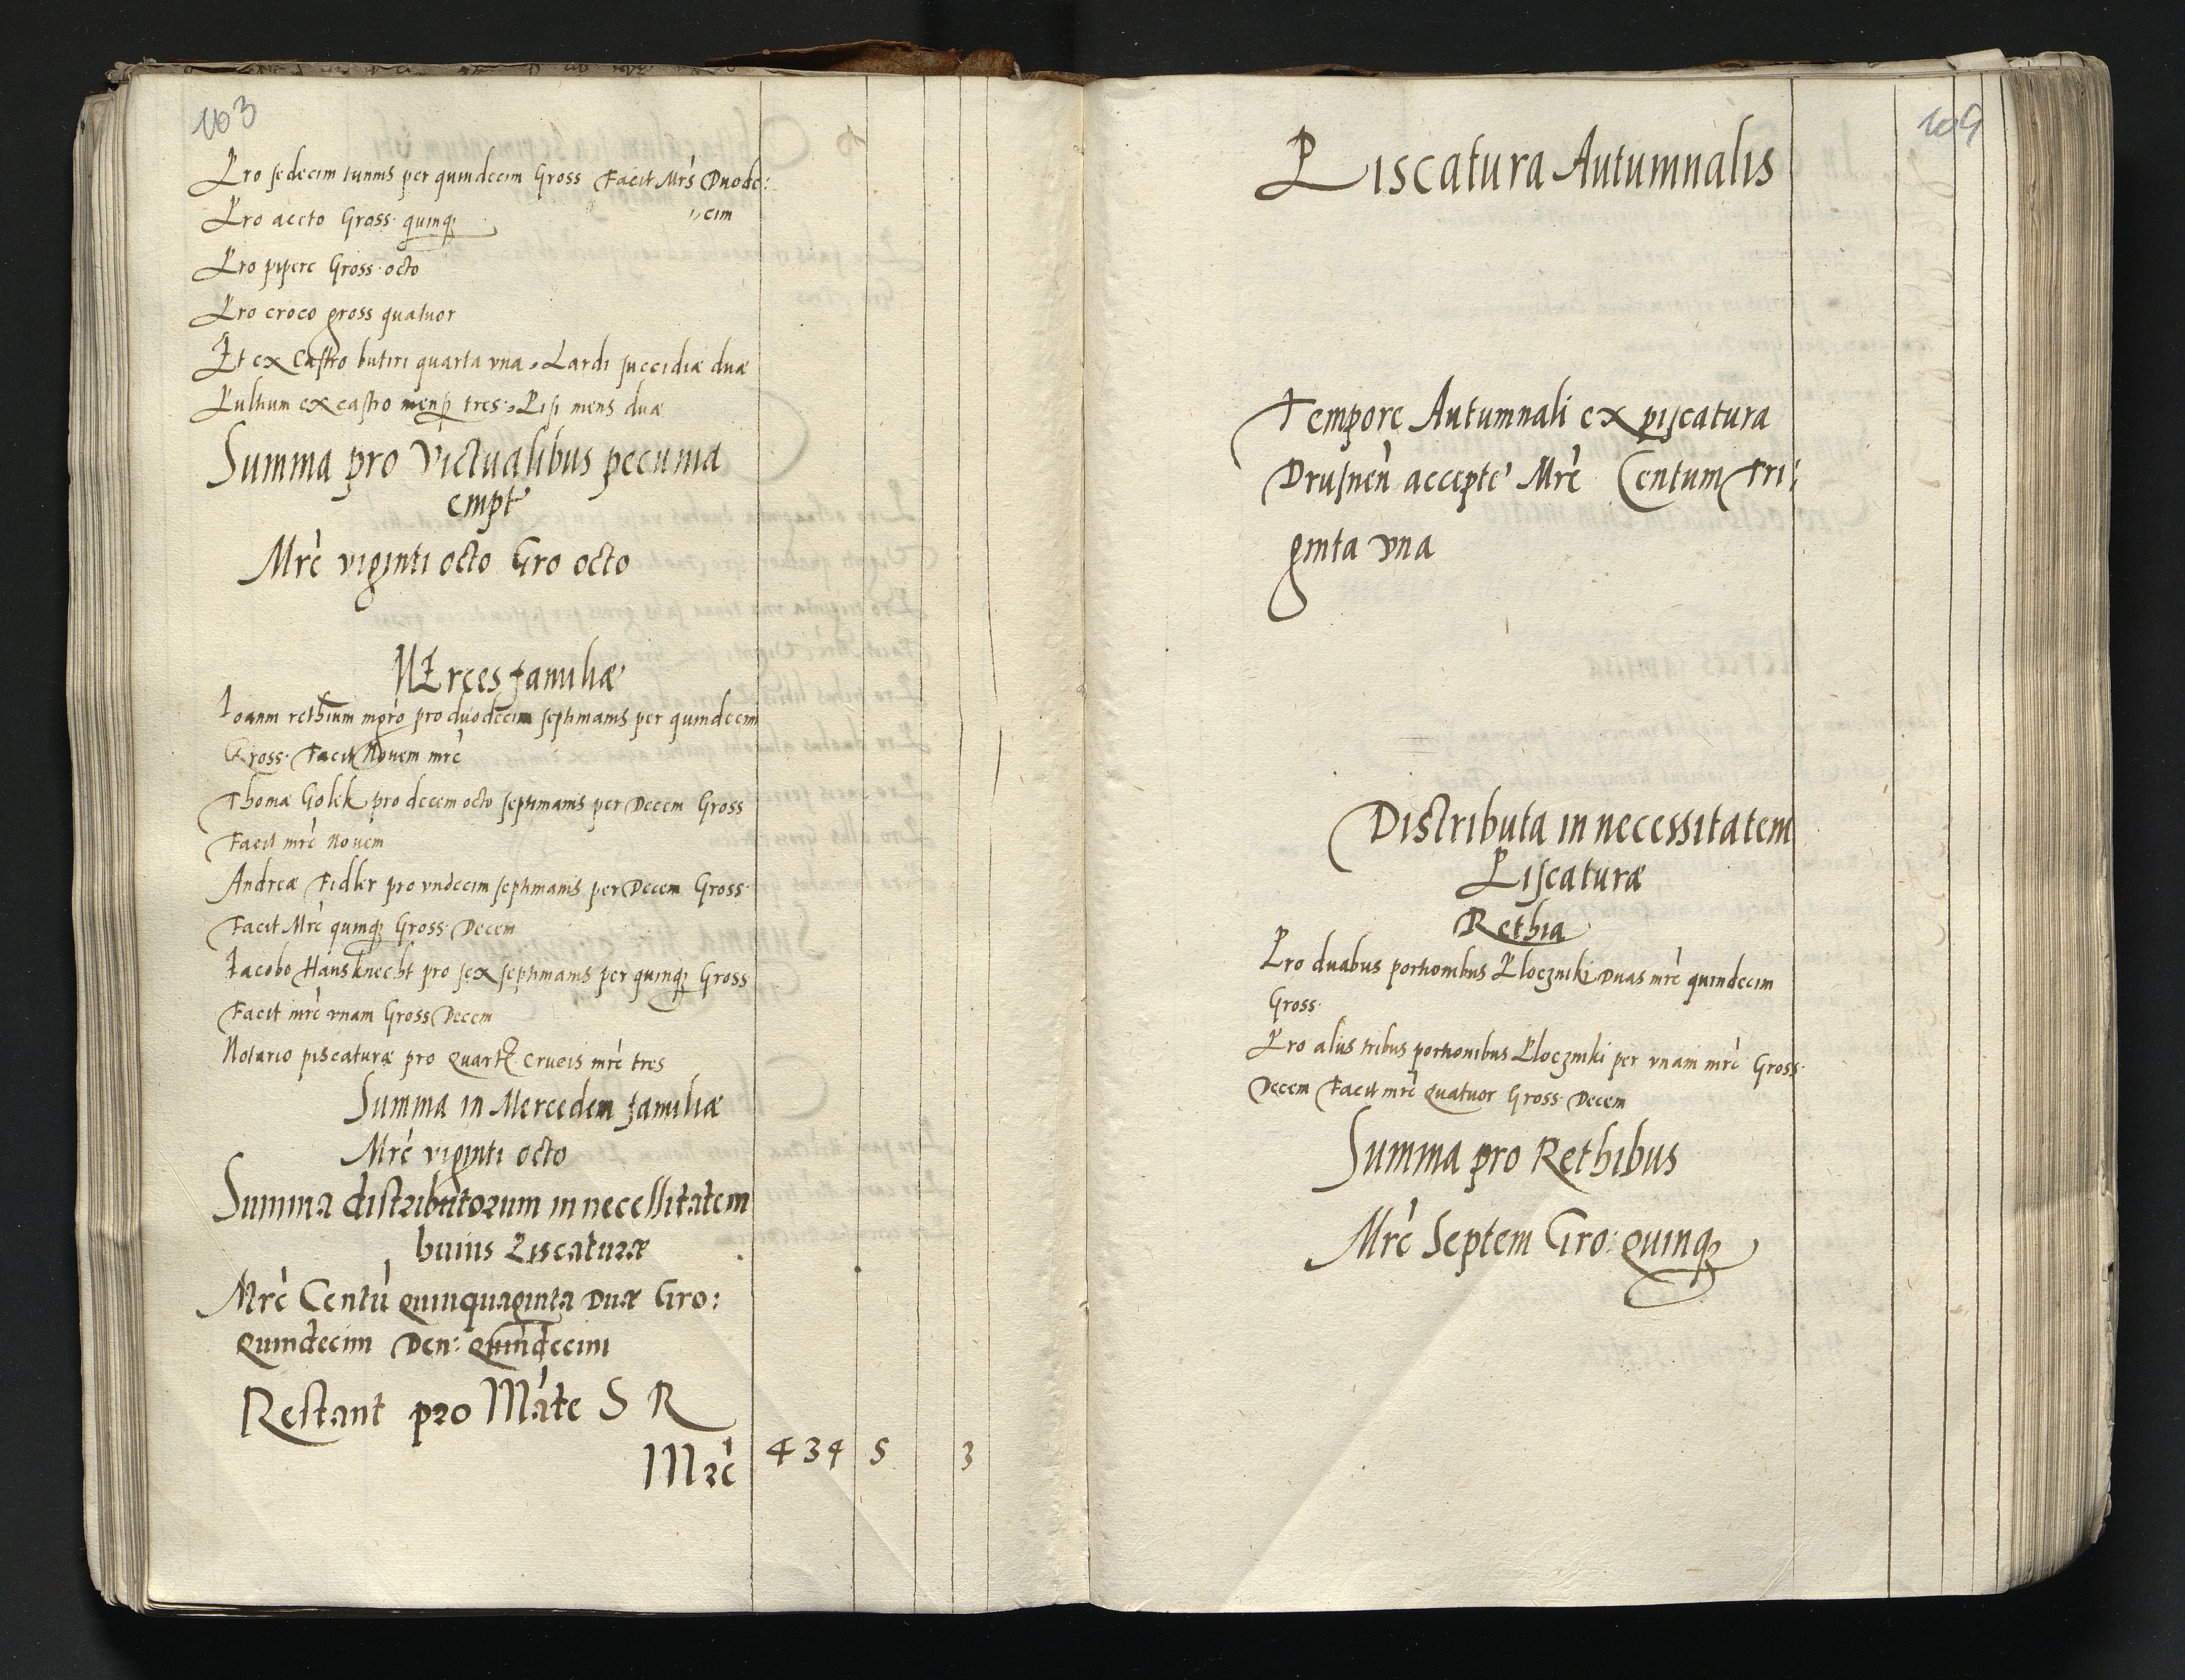 103
Pro sedecim tunnis per quindecim Gross Facit Mrs Duode:
cim
Pro aceto Gross. quinq
Pro pipere Gross. octo
Pro croco gross quatuor
Et ex Castro butiri quarta vna. Lardi succidiæ duæ
Pultium ex castro mens tres. Pisi mens duæ
Summa pro Victualibus pecunia
empt
Mrc viginti octo Gro octo
MErces familiæ
Ioanni rethium mgro pro duodecim septimanis per quindecim
Gross. Facit Novem mrc
Thomæ Golek pro decem octo septimanis per Decem Gross
Facit mrc Novem
Andreæ Fidler pro vndecim septimanis per Decem Gross.
Facit Mrc quinq Gross. Decem
Iacobo Hansknecht pro sex septimanis per quinq Gross
Facit mrc vnam Gross Decem
Notario piscaturæ pro quart Crucis mrc tres
Summa in Mercedem familiæ
Mrc viginti octo
Summa distributorum in necessitatem
huius Piscaturæ
Mrc Centu quinquaginta Duæ Gro:
Quindecim Den: quindecim
Restant pro Mate S R
Mrc 434 5 3
109
Piscatura Autumnalis
Tempore Autumnali ex piscatura
Drusnen accepte Mrc Centum Tri:
ginta vna
Distributa in necessitatem
Piscaturæ
Rethia
Pro duabus portionibus Ploczniki Duas mrc quindecim
Gross.
Pro aliis tribus portionibus Ploczniki per vnam mrc Gross.
Decem Facit mrc Quatuor Gross. Decem
Summa pro Rethibus
Mrc Septem Gro: quinq